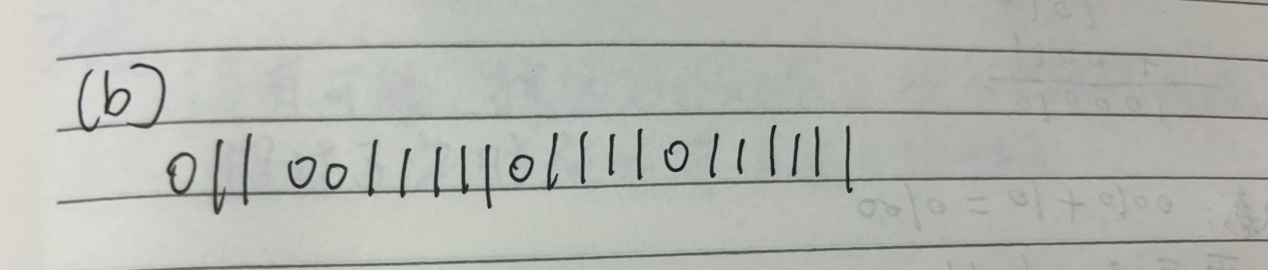 (b)
0110011111101111101111111